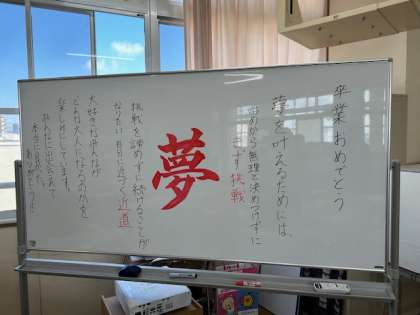 卒業おめでとう
夢を叶えるためには、
はじめから無理と決めつけずに
まず挑戦
夢
挑戦を諦めずに続けることが
なりたい自分に近づく近道
大好きなみんなが
どんな大人になるのかを
楽しみにしています。
みんなに出会えて
本当に良かった
ありがとう